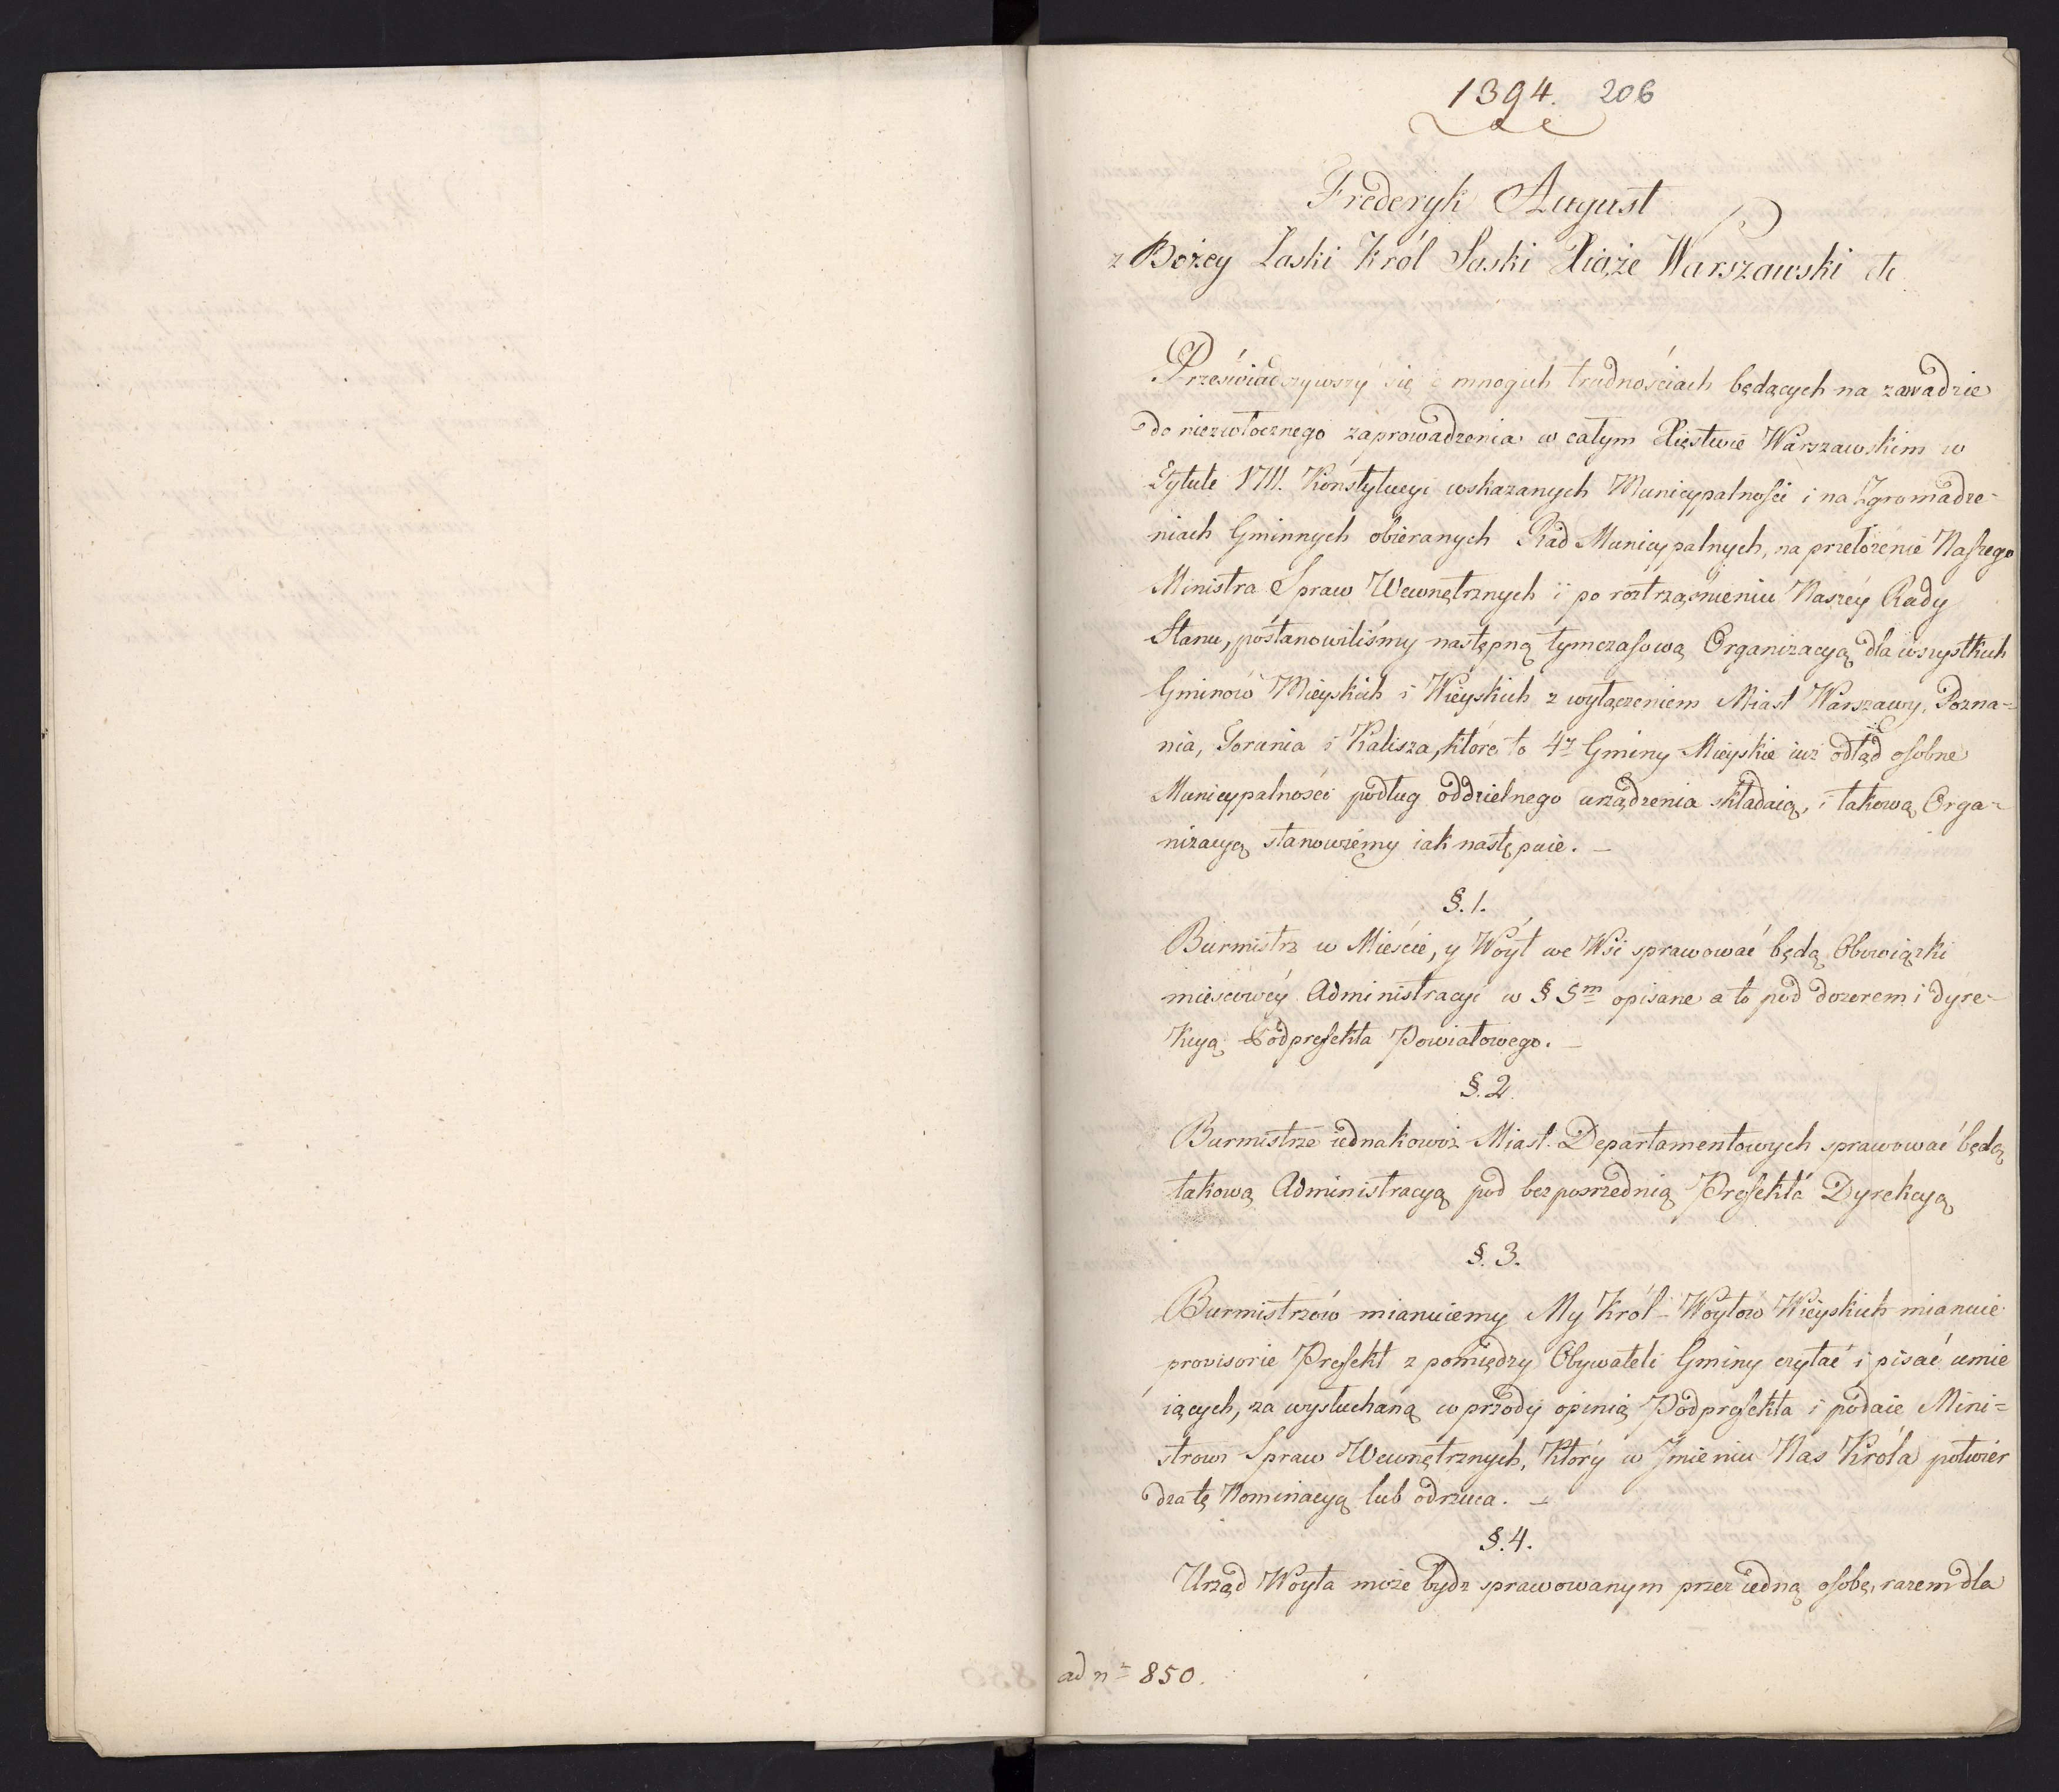 1394. 206
Frederyk August
z Bożey Łaski Król Saski Xiąże Warszawski etc
Przeświadczywszy się o mnogich trudnościach będących na zawadzie
do niezwłocznego zaprowadzenia w całym Xięstwie Warszawskim w
Tytule VIII. Konstytucyi wskazanych Municypalności i na Zgromadze-
niach Gminnych obieranych Rad Municypalnych, na przełożenie Naszego
Ministra Spraw Wewnętrznych i po roztrząśnieniu Naszey Rady
Stanu, postanowiliśmy następną tymczasową Organizacyą dla wszystkich
Gminów Mieyskich i Wieyskich z wyłączeniem Miast Warszawy, Pozna=
nia, Torunia i Kalisza, które to 4ry Gminy Mieyskie iuż odtąd osobne
Municypalności podług oddzielnego urządzenia składaią, i takową Orga=
nizacyą stanowiemy iak następuie. –
§. 1.
Burmistrz w Mieście, y Woyt we Wsi sprawować będą Obowiązki
mieścowey Administracyi w § 5m opisane a to pod dozorem i dyre-
kcyą Podprefekta Powiatowego. –
§. 2.
Burmistrze iednakowoż Miast Departamentowych sprawować będą
takową Administracyą pod bezpośrzednią Prefekta Dyrekcyą
§. 3.
Burmistrzów mianuiemy My Król – Woytów Wieyskich mianuie
provisorie Prefekt z pomiędzy Obywateli Gminy czytać i pisać umie
iących, za wysłuchaną wprzody opinią Podprefekta i podaie Mini=
strowi Spraw Wewnętrznych, Który w Imieniu Nas Króla potwier
dza tę Nominacyą lub odrzuca. –
§. 4.
Urząd Woyta może bydz sprawowanym przez iedną osobę, razem dla
ad nr 850.